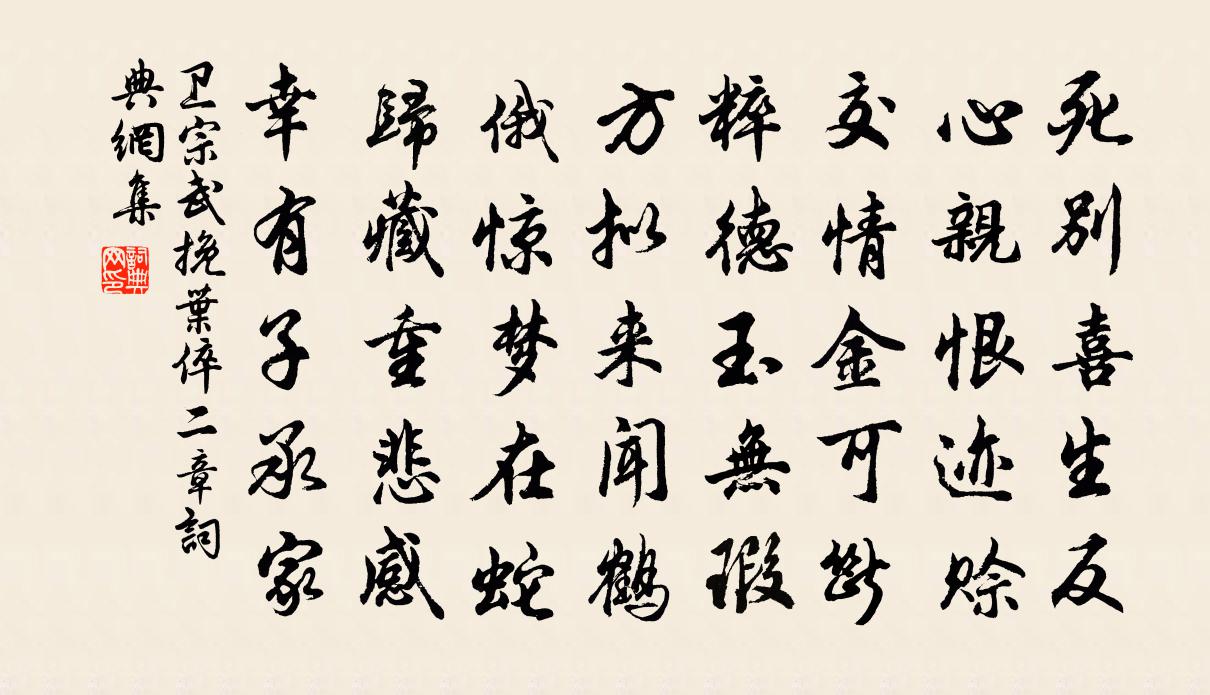 死别喜生反
心親恨迹賒
交情金可斷
粹德玉無瑕
方拟来闻鹤
俄惊梦在蛇
歸藏重悲感
幸有子承家
卫宗武挽葉倅二章詞
典網集
詞典
网印